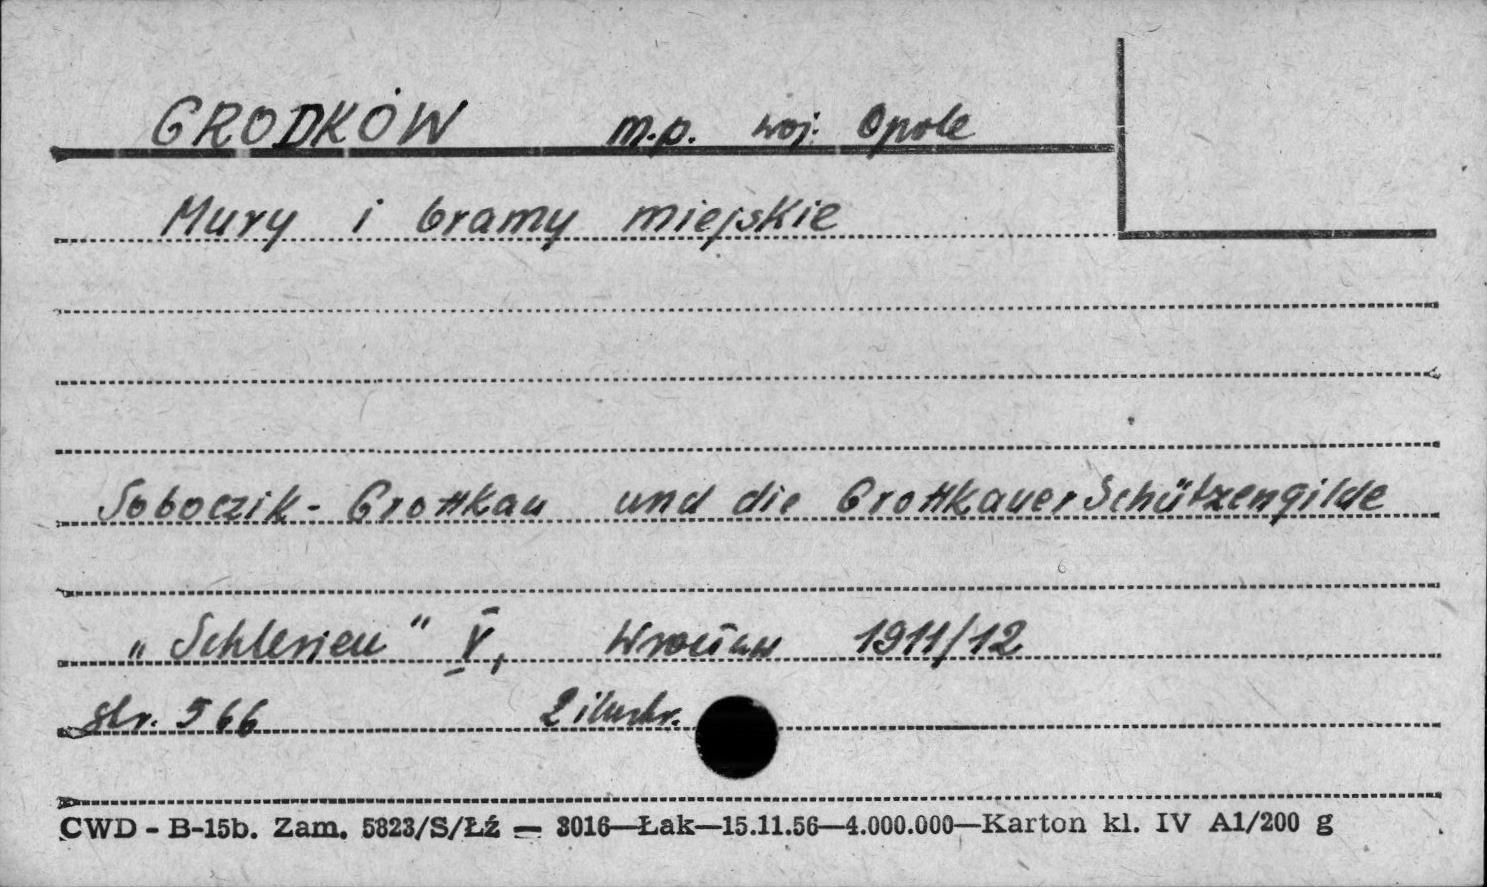 GRODKÓW m.p. woj. Opole
Mury i bramy miejskie
Soboczik - Grottkau und die Grottkauer Schützengilde
"Schlesien" V, Wrocław 1911/12
str. 566 2 ilustr.
CWD - B-15b. Zam. 5823/S/Łź — 3016—Łak—15.11.56—4.000.000—Karton kl. IV A1/200 g